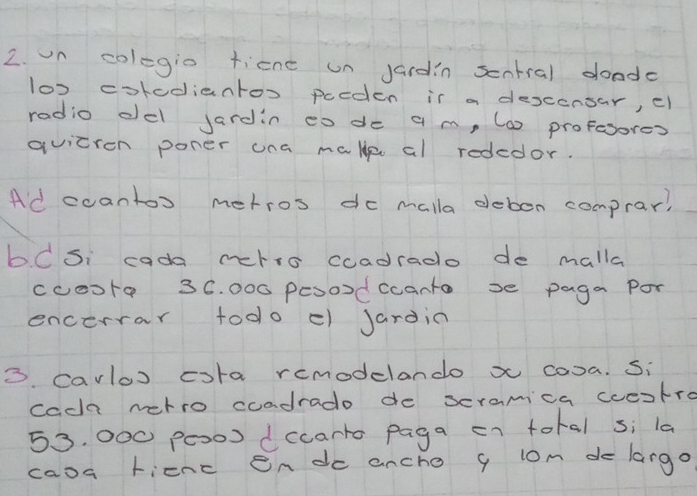 2. un colegio tiene un jardin sentral donde
los estudiantes pueden ir a descansar, el
radio del jardin es de 9 m, los profesores
quieren poner una malla al rededor.
A¿ cuantos metros de malla deben comprar?
b.¿ Si cada metro cuadrado de malla
cuesta 36.000 pesos¿ cuanto se paga por
encerrar todo el jardin
3. carlos esta remodelando su casa. Si
cada metro cuadrado de seramica cuestra
53.000 pesos ¿ cuanto paga en total si la
casa tiene 8m de ancho y 10m de largo